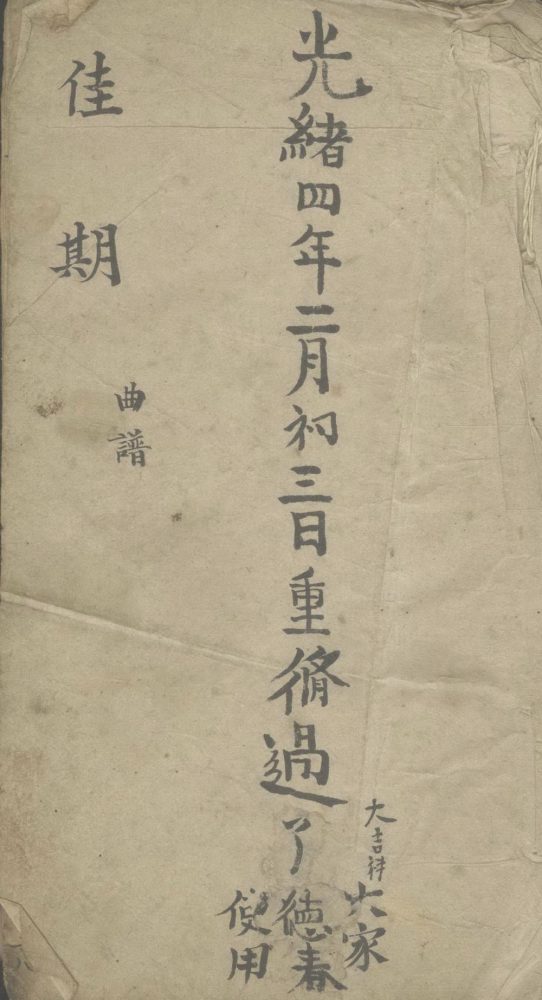 大吉祥
大家
光緒四年二月初三日重脩過了
德春
使用
曲譜
佳期